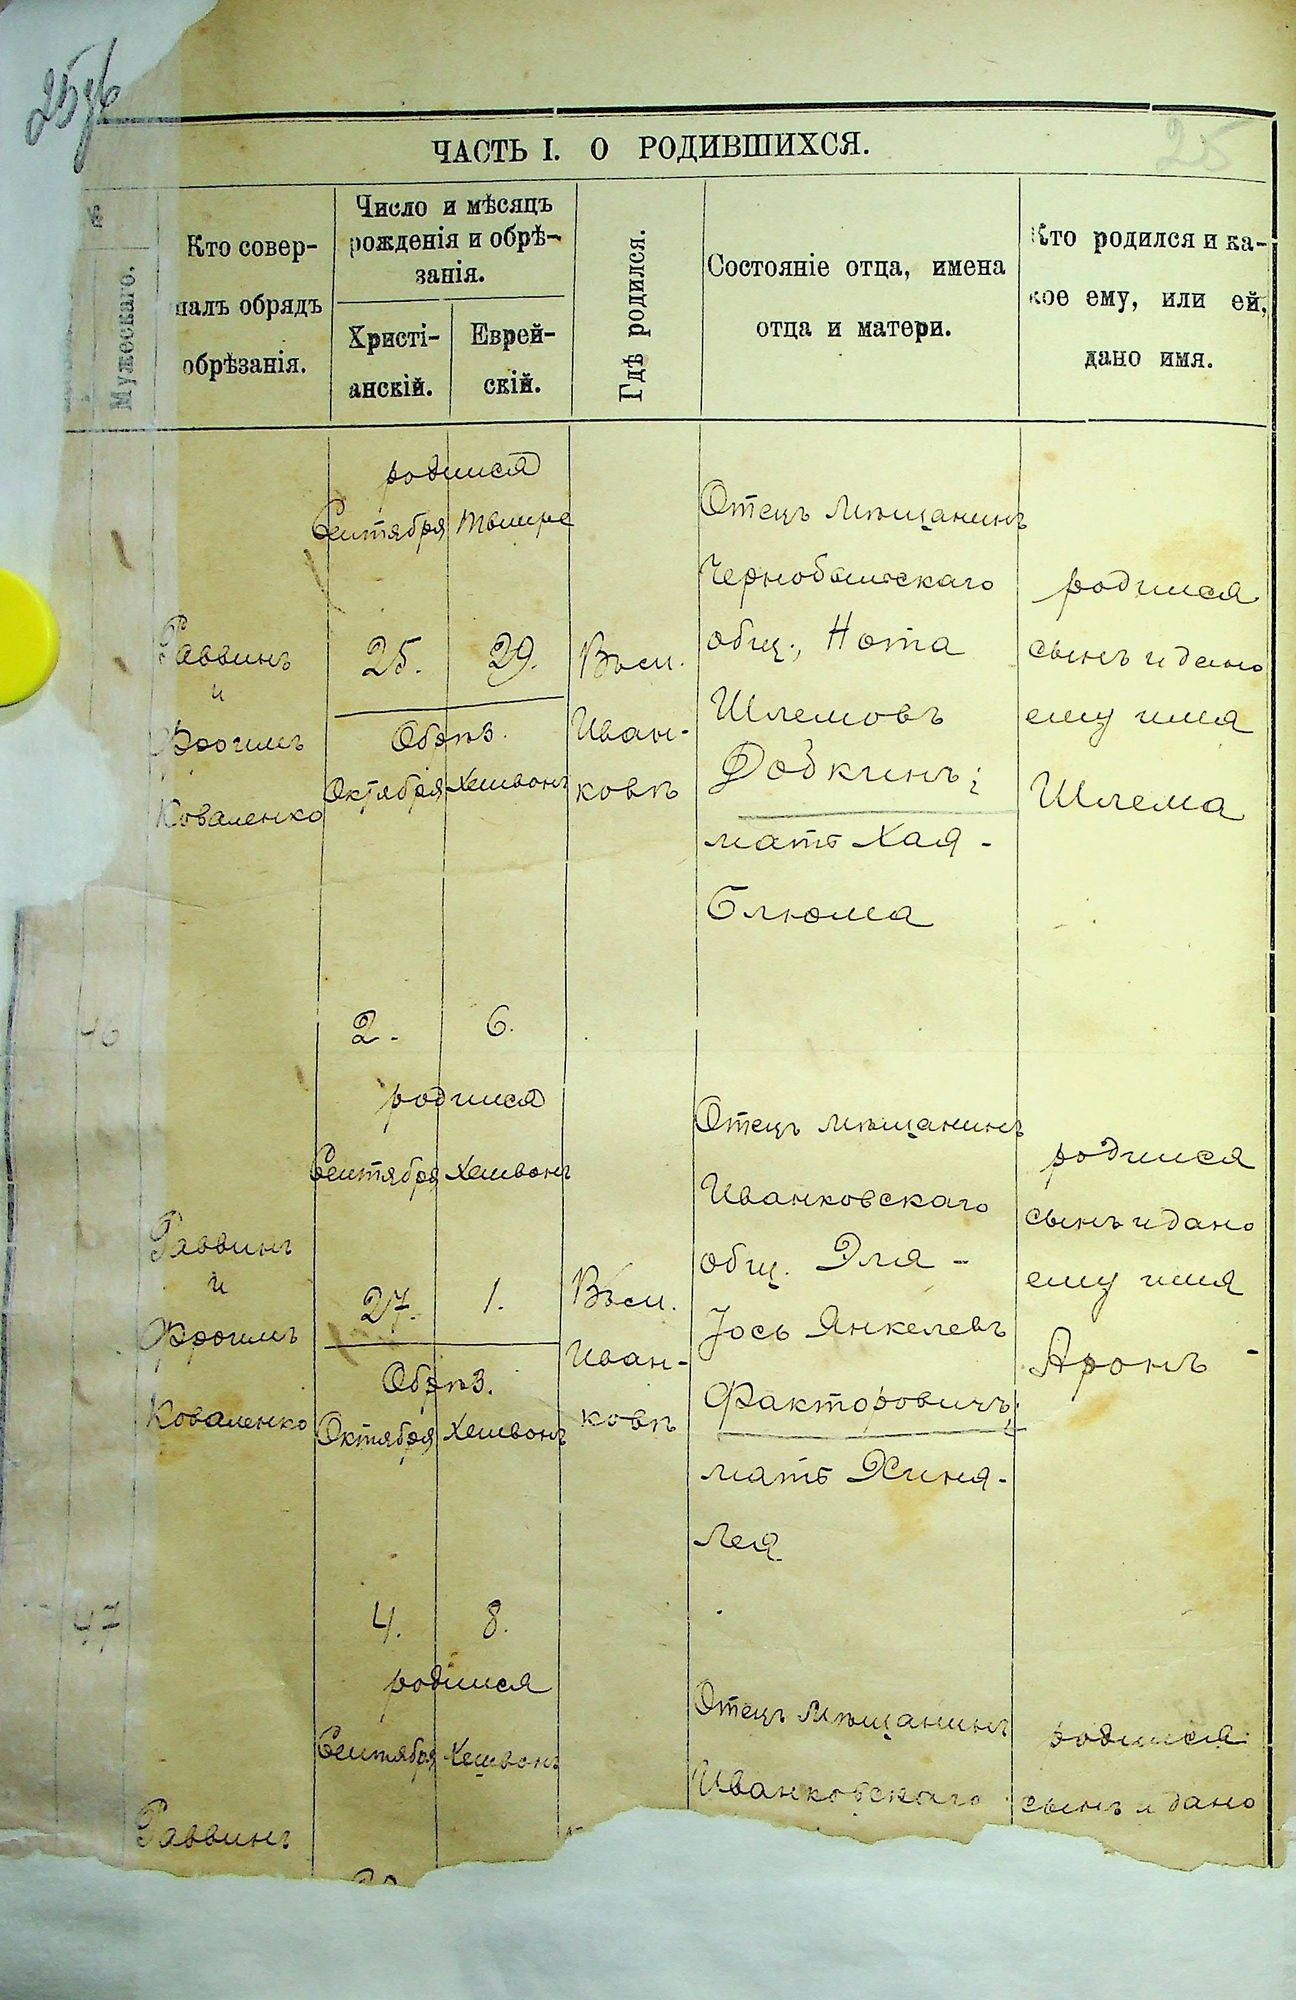 25
25
ЧАСТЬ I. О РОДИВШИХСЯ.
Мужескаго.
Кто совер-
шалъ обрядъ
обрѣзанія.
Число и мѣсяцъ
рожденія и обрѣ-
занія.
Христі-
анскій.
Еврей-
скій.
Гдѣ родился.
Состояніе отца, имена
отца и матери.
Кто родился и ка-
кое ему, или ей,
дано имя.
Раввинъ
и
Фроимъ
Коваленко
родился
Сентября Тишре
25. 29.
Обрѣз.
Октября Хешвонъ
2. 6.
Въ м.
Иван-
ковѣ
Отецъ мѣщанинъ
Чернобыльскаго
общ., Нота
Шлемовъ
Добкинъ;
мать Хая-
Блюма
родился
сынъ и дано
ему имя
Шлема
46
Раввинъ
и
Фроимъ
Коваленко
родился
Сентября Хешвонъ
27. 1.
Обрѣз.
Октября Хешвонъ
4. 8.
Въ м.
Иван-
ковѣ
Отецъ мѣщанинъ
Иванковскаго
общ. Эля-
Іось Янкелевъ
Факторовичъ;
мать Хиня-
Лея
родился
сынъ и дано
ему имя
Аронъ
47
Раввинъ
родился
Сентября Хешвонъ
Отецъ мѣщанинъ
Иванковскаго
родился
сынъ и дано